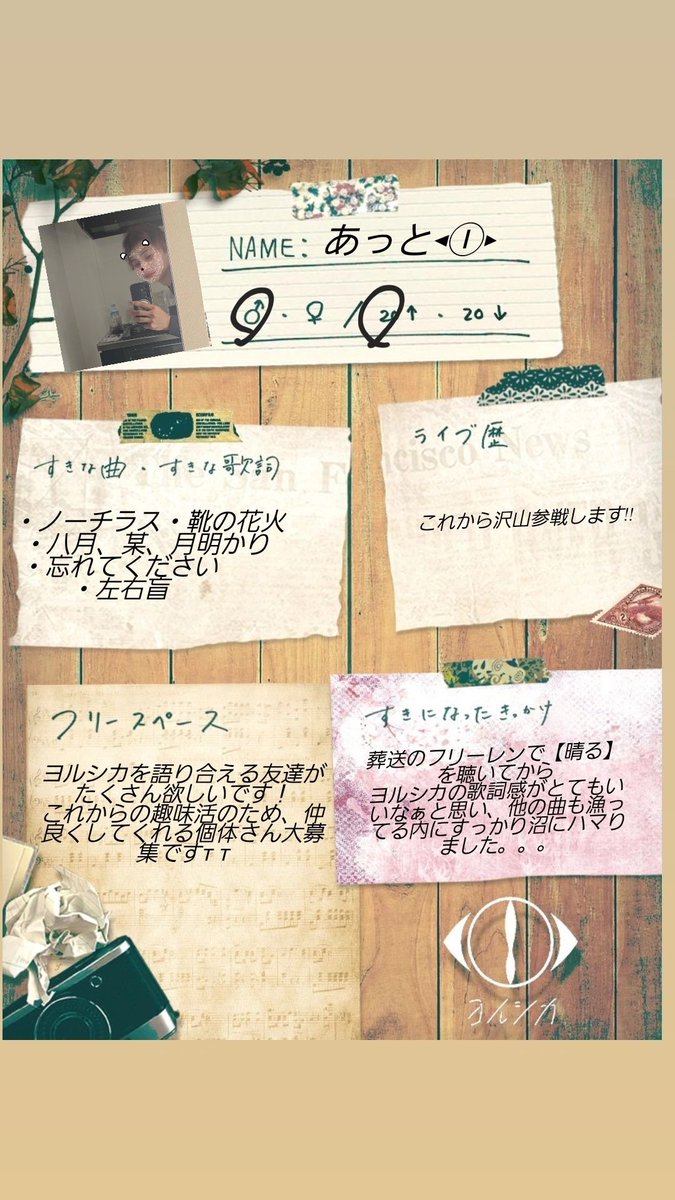 NAME: あっと◂①▸
♂・♀ / 20↑・20↓
すきな曲・すきな歌詞
・ノーチラス・靴の花火
・八月、某、月明かり
・忘れてください
・左右盲
ライブ歴
Francisco News
これから沢山参戦します!!
フリースペース
ヨルシカを語り合える友達が
たくさん欲しいです！
これからの趣味活のため、仲
良くしてくれる個体さん大募
集ですᴛ ᴛ
すきになったきっかけ
葬送のフリーレンで【晴る】
を聴いてから
ヨルシカの歌詞感がとてもい
いなぁと思い、他の曲も漁っ
てる内にすっかり沼にハマり
ました。。。
ヨルシカ